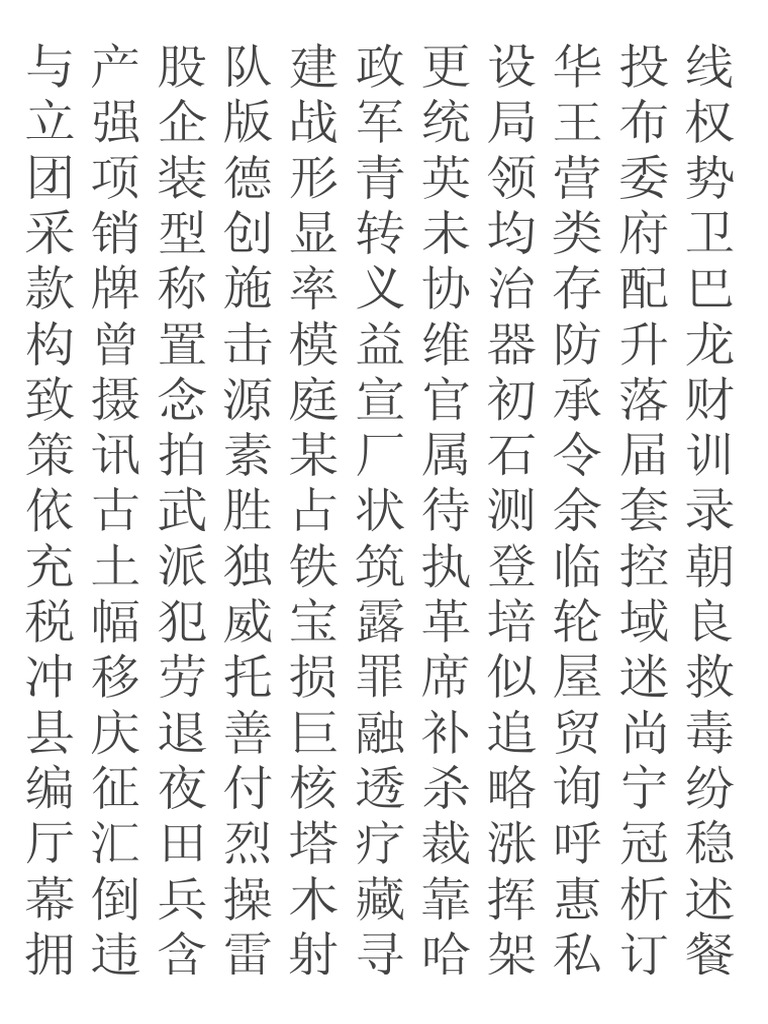 与产股队建政更设华投线
立强企版战军统局王布权
团项装德形青英领营委势
采销型创显转未均类府卫
款牌称施率义协治存配巴
构曾置击模益维器防升龙
致摄念源庭宣官初承落财
策讯拍素某厂属石令届训
依古武胜占状待测余套录
充土派独铁筑执登临控朝
税幅犯威宝露革培轮域良
冲移劳托损罪席似屋迷救
县庆退善巨融补追贸尚毒
编征夜付核透杀略询宁纷
厅汇田烈塔疗裁涨呼冠稳
幕倒兵操木藏靠挥惠析述
拥违含雷射寻哈架私订餐